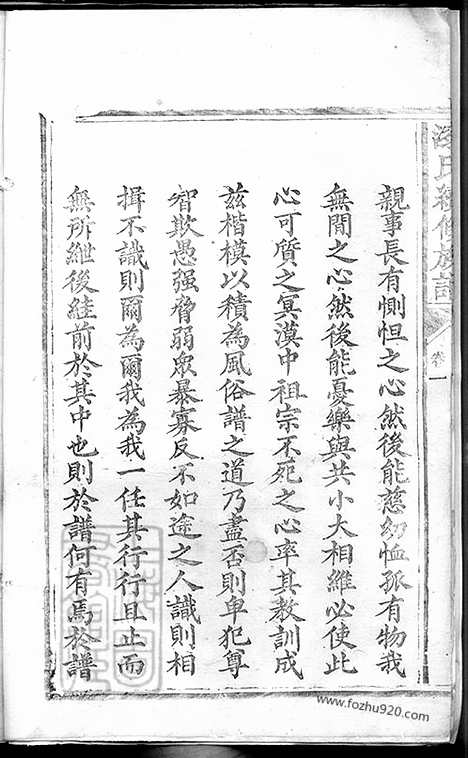 氏續修族譜
卷一
親事長有惻怛之心然後能慈幼恤孤有物我
無間之心然後能憂樂與共小大相維必使此
心可質之冥漠中祖宗不死之心率其教訓成
茲楷模以積為風俗譜之道乃盡否則卑犯尊
智欺愚强脅弱眾暴寡反不如途之人識則相
揖不識則爾為爾我為我一任其行行且止而
無所絓後絓前於其中也則於譜何有焉於譜
www.fozhu920.com